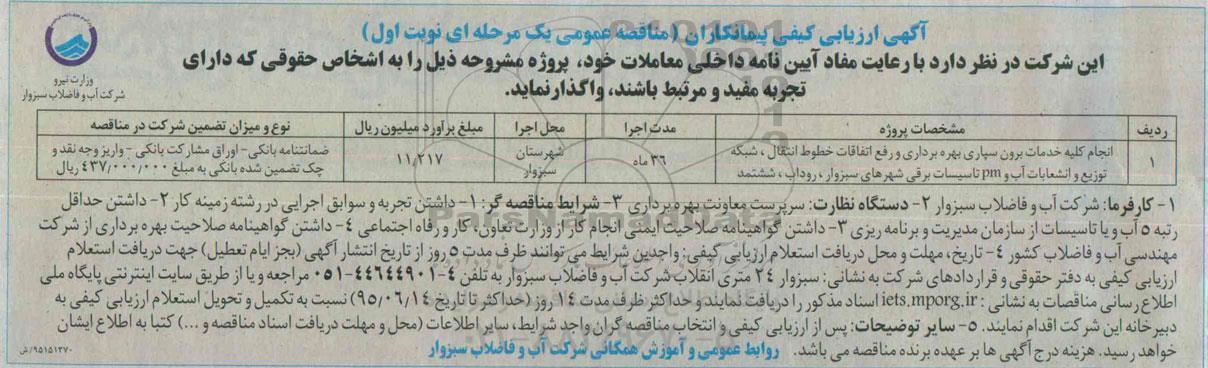 آگهی ارزیابی کیفی پیمانکاران (مناقصه عمومی یک مرحله ای نوبت اول)
این شرکت در نظر دارد با رعایت مفاد آیین نامه داخلی معاملات خود، پروژه مشروحه ذیل را به اشخاص حقوقی که دارای
تجربه مفید و مرتبط باشند، واگذار نماید.
وزارت نیرو
شرکت آب و فاضلاب سبزوار
ردیف مشخصات پروژه مدت اجرا محل اجرا مبلغ برآورد میلیون ریال نوع و میزان تضمین شرکت در مناقصه
۱ انجام کلیه خدمات برون سپاری بهره برداری و رفع اتفاقات خطوط انتقال ، شبکه
توزیع و انشعابات آب و pm تاسیسات برقی شهرهای سبزوار ، روداب ، ششتمد
۳۶ ماه
شهرستان
سبزوار
۱۱,۲۱۷
ضمانتنامه بانکی- اوراق مشارکت بانکی - واریز وجه نقد و
چک تضمین شده بانکی به مبلغ ۴۳۷/۰۰۰/۰۰۰ ریال
۱- کارفرما: شرکت آب و فاضلاب سبزوار ۲- دستگاه نظارت: سرپرست معاونت بهره برداری ۳- شرایط مناقصه گر: ۱- داشتن تجربه و سوابق اجرایی در رشته زمینه کار ۲- داشتن حداقل
رتبه ۵ آب و یا تاسیسات از سازمان مدیریت و برنامه ریزی ۳- داشتن گواهینامه صلاحیت ایمنی انجام کار از وزارت تعاون، کار و رفاه اجتماعی ۴- داشتن گواهینامه صلاحیت بهره برداری از شرکت
مهندسی آب و فاضلاب کشور ۴- تاریخ، مهلت و محل دریافت استعلام ارزیابی کیفی: واجدین شرایط می توانند ظرف مدت ۵ روز از تاریخ انتشار آگهی (بجز ایام تعطیل) جهت دریافت استعلام
ارزیابی کیفی به دفتر حقوقی و قراردادهای شرکت به نشانی : سبزوار ۲۴ متری انقلاب شرکت آب و فاضلاب سبزوار به تلفن ۴-۴۴۶۴۴۹۰۱-۰۵۱ مراجعه و یا از طریق سایت اینترنتی پایگاه ملی
اطلاع رسانی مناقصات به نشانی : iets.mporg.ir اسناد مذکور را دریافت نمایند و حداکثر ظرف مدت ۱۴ روز (حداکثر تا تاریخ ۹۵/۰۶/۱۴) نسبت به تکمیل و تحویل استعلام ارزیابی کیفی به
دبیرخانه این شرکت اقدام نمایند. ۵- سایر توضیحات: پس از ارزیابی کیفی و انتخاب مناقصه گران واجد شرایط، سایر اطلاعات (محل و مهلت دریافت اسناد مناقصه و ...) کتبا به اطلاع ایشان
خواهد رسید. هزینه درج آگهی ها بر عهده برنده مناقصه می باشد. روابط عمومی و آموزش همگانی شرکت آب و فاضلاب سبزوار
۹۵۱۵۱۲۷۰/ش
ParsNamadData